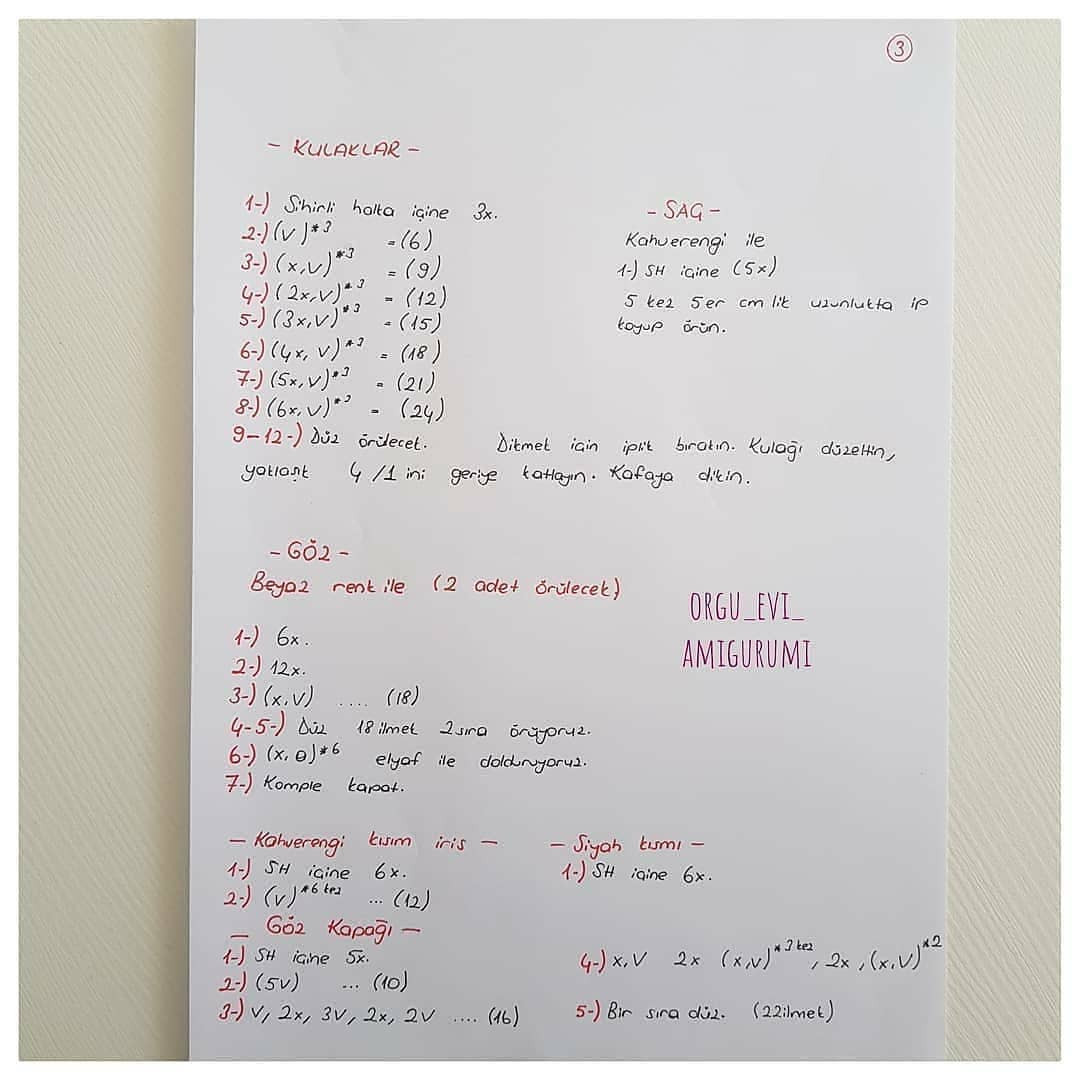 3
- KULAKLAR -
1-) Sihirli halka içine 3x.
2-) (V)*3 = (6)
3-) (x,V)*3 = (9)
4-) (2x,V)*3 = (12)
5-) (3x,V)*3 = (15)
6-) (4x, V)*3 = (18)
7-) (5x,V)*3 = (21)
8-) (6x,V)*3 = (24)
9-12-) Düz örülecek. Dikmek için iplik bırakın. Kulağı düzeltin,
yaklaşık 4/1 ini geriye katlayın. Kafaya dikin.
- SAG -
Kahverengi ile
1-) SH içine (5x)
5 kez 5er cm lik uzunlukta ip
koyup örün.
- GÖZ -
Beyaz renk ile (2 adet örülecek)
1-) 6x.
2-) 12x.
3-) (x,V) .... (18)
4-5-) Düz 18 ilmek 2 sıra örüyoruz.
6-) (x, ꝋ)*6 elyaf ile dolduruyoruz.
7-) Komple kapat.
ORGU_EVI_
AMIGURUMI
- Kahverengi kısım iris -
1-) SH içine 6x.
2-) (V)*6 kez ... (12)
- Siyah kısmı -
1-) SH içine 6x.
- Göz Kapağı -
1-) SH içine 5x.
2-) (5V) ... (10)
3-) V, 2x, 3V, 2x, 2V .... (16)
4-) x,V 2x (x,V)*3 kez, 2x,(x,V)*2
5-) Bir sıra düz. (22ilmek)